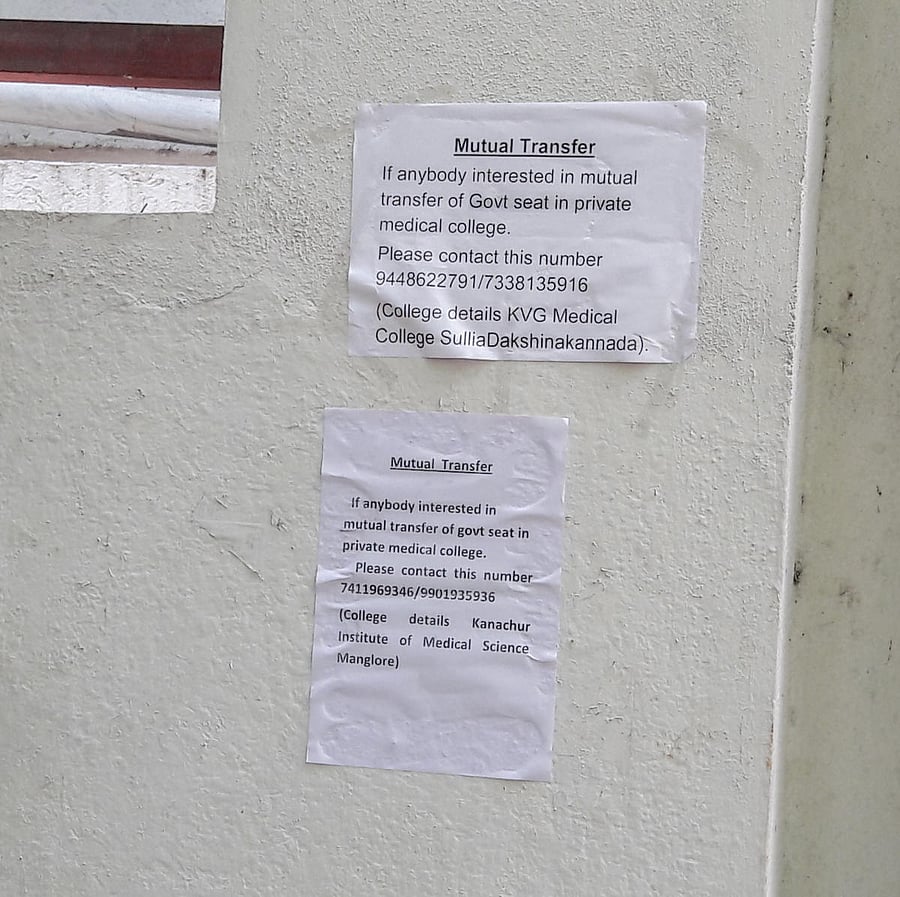 Mutual Transfer
If anybody interested in mutual
transfer of Govt seat in private
medical college.
Please contact this number
9448622791/7338135916
(College details KVG Medical
College SulliaDakshinakannada).
Mutual Transfer
If anybody interested in
mutual transfer of govt seat in
private medical college.
Please contact this number
7411969346/9901935936
(College details Kanachur
Institute of Medical Science
Manglore)